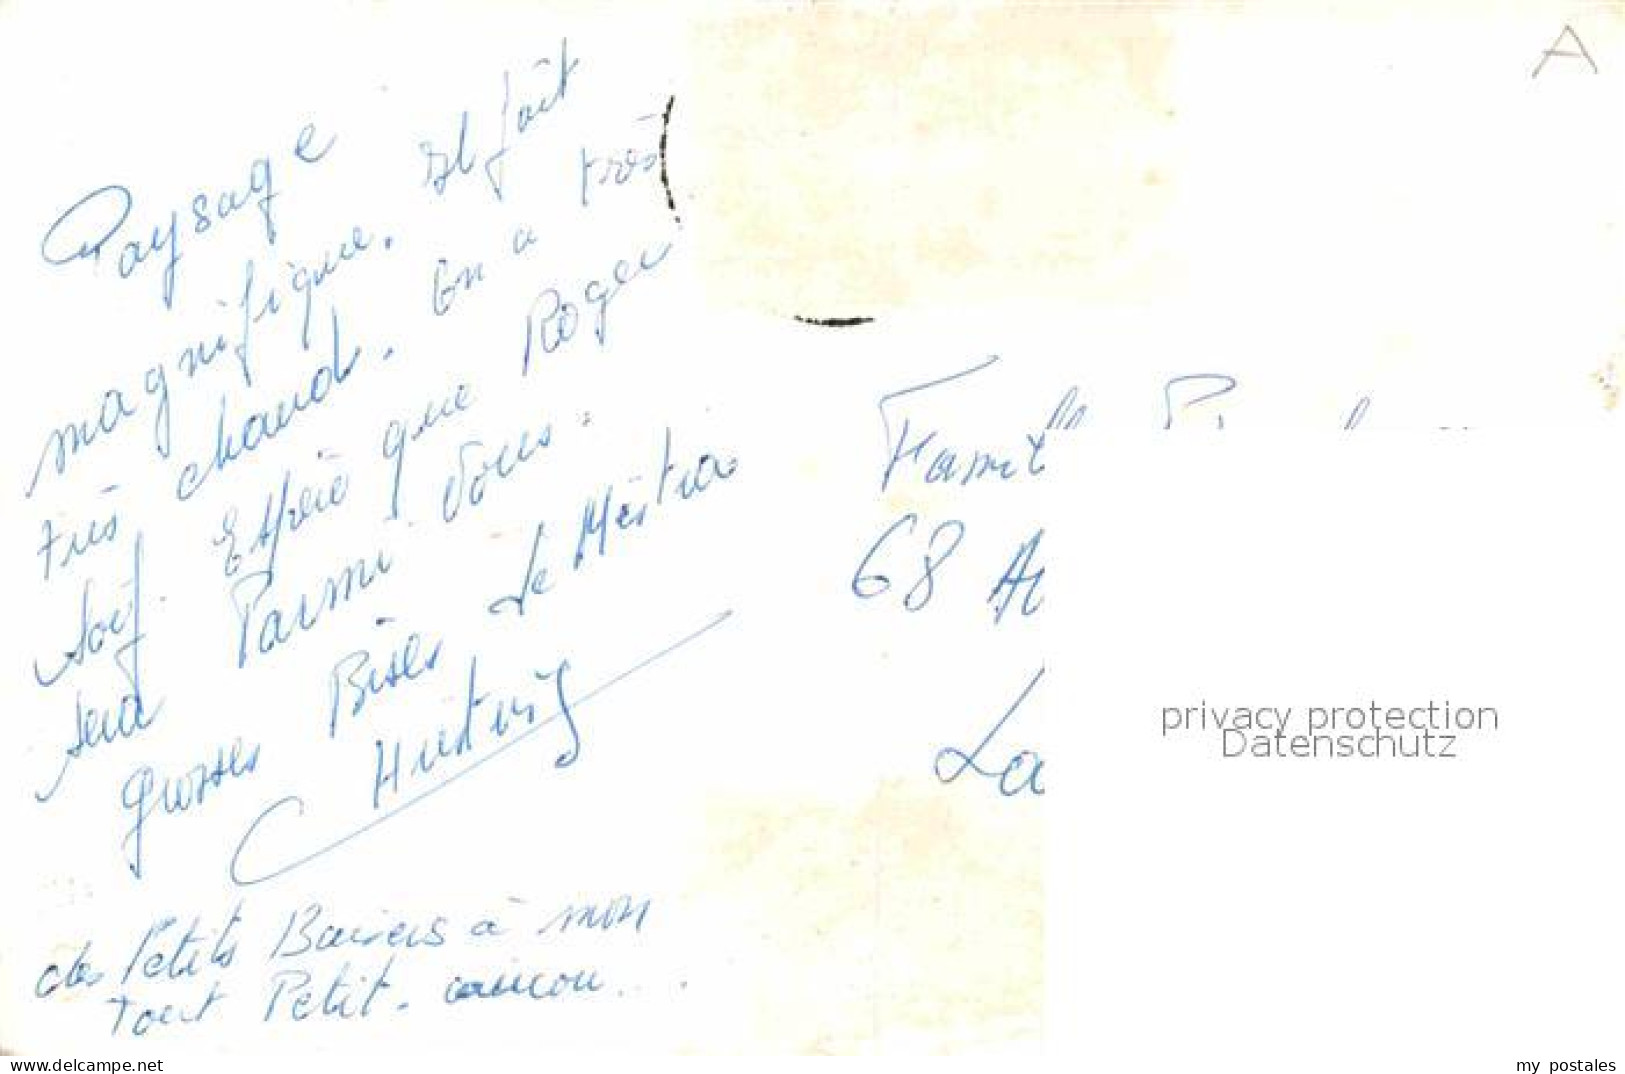 A
Paysage
magnifique. Il fait
très chaud. On a très
soif. Espère que Roger
sera Parmi Vous.
grosses Bises
des Petits Baisers à mon
Tout Petit.
Famill
68 A
La
privacy protection
Datenschutz
www.delcampe.net
my_postales